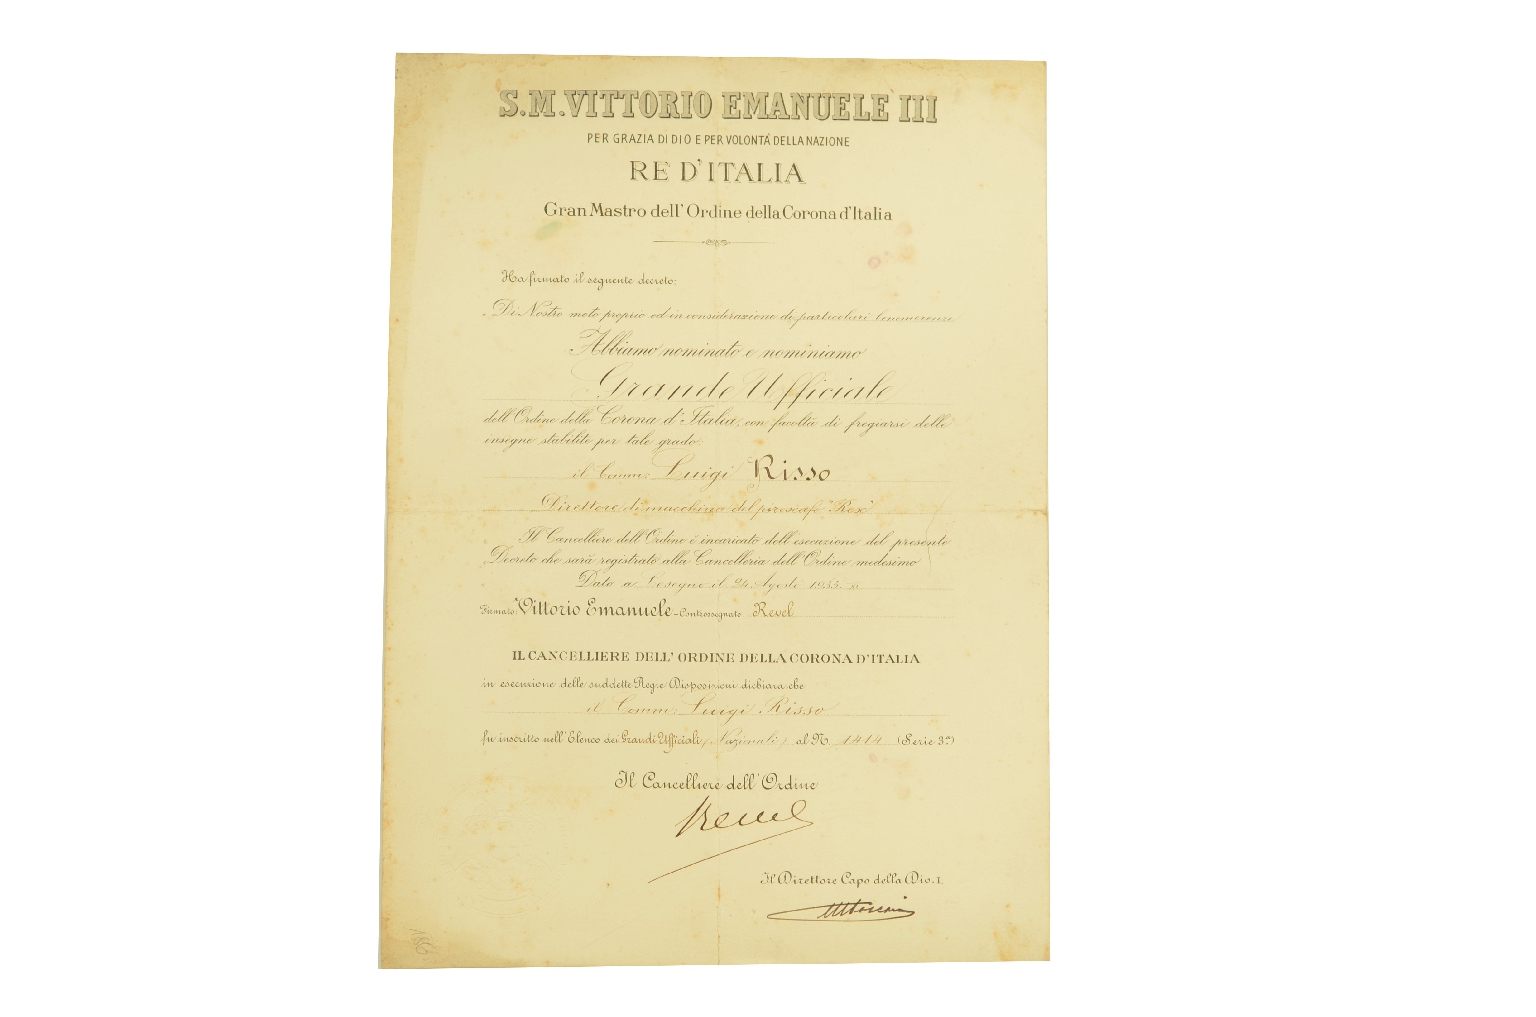 S.M. VITTORIO EMANUELE III
PER GRAZIA DI DIO E PER VOLONTÀ DELLA NAZIONE
RE D'ITALIA
Gran Mastro dell'Ordine della Corona d'Italia
Ha firmato il seguente decreto:
Di Nostro moto proprio ed in considerazione di particolari benemerenze
Abbiamo nominato e nominiamo
Grande Ufficiale
dell'Ordine della Corona d'Italia, con facoltà di fregiarsi delle
insegne stabilite per tale grado:
il Comm: Luigi Risso
Direttore di macchina del piroscafo "Rex"
Il Cancelliere dell'Ordine è incaricato dell'esecuzione del presente
Decreto che sarà registrato alla Cancelleria dell'Ordine medesimo
Dato a il 24 Agosto 1933
Firmato: Vittorio Emanuele - Controssegnato Revel
IL CANCELLIERE DELL'ORDINE DELLA CORONA D'ITALIA
in esecuzione delle suddette Regie Disposizioni dichiara che
il Comm: Luigi Risso
fu inscritto nell'Elenco dei Grandi Ufficiali (Nazionali) al N. 1414 (Serie 3ª)
Il Cancelliere dell'Ordine
Revel
Il Direttore Capo della Div. I.